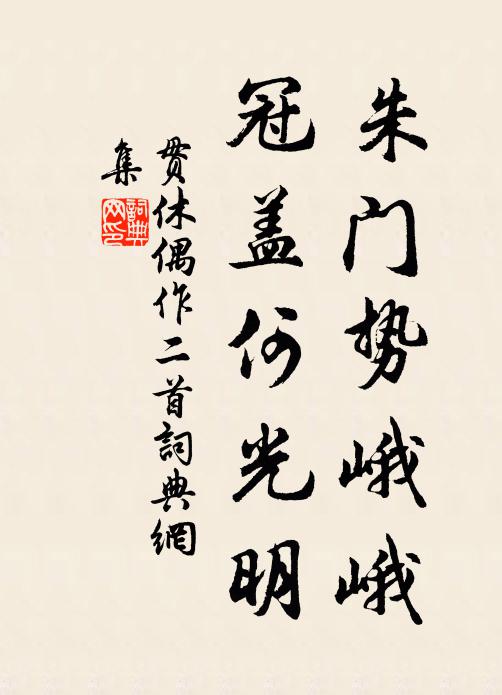 朱门势峨峨
冠盖何光明
贯休偶作二首詞典網
集
詞典
网印